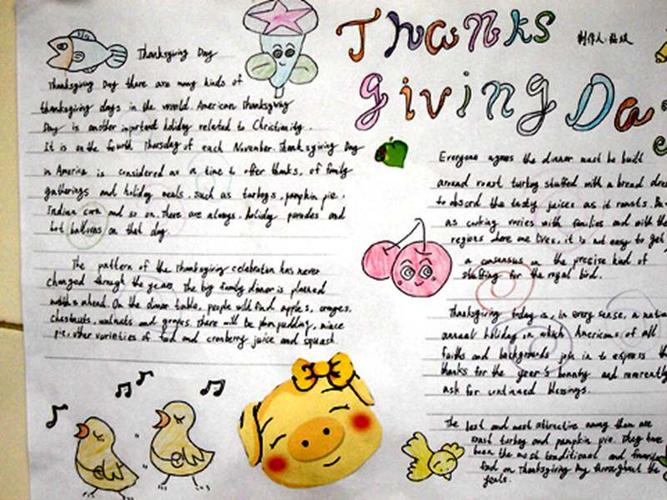 Thanks
Giving Da
制作人:
Thanksgiving Day
Thanksgiving Day there are many kinds of
thanksgiving days in the world. American thanksgiving
Day is another important holiday related to Christianity.
It is on the fourth Thursday of each November. Thanksgiving Day
in America is considered as a time to offer thanks, of family
gatherings and holiday meals, such as turkeys, pumpkin pie,
Indian corn and so on. There are always holiday parades and
hot balloons on that day.
The pattern of the thanksgiving celebration has never
changed through the years. The big family dinner is planned
months ahead. On the dinner table, people will find apples, oranges,
chestnuts, walnuts and grapes. There will be plum pudding, mince
pie, other varieties of food and cranberry juice and squash.
Everyone agrees the dinner must be built
around roast turkey stuffed with a bread dre
to absord the tasty juices as it roasts. Bu
as cooking varies with families and with the
regions where one lives, it is not easy to get
a consensus on the precise kind of
stuffing for the royal bird.
Thanksgiving today is, in every sense, a nation
annual holiday in which Americans of all
faiths and backgrounds join in to express th
thanks for the year's bounty and reverently
ask for continued blessings.
The best and most attractive among them are
roast turkey and pumpkin pie. They have
been the most traditional and favorite
food on Thanksgiving Day throughout the
years.